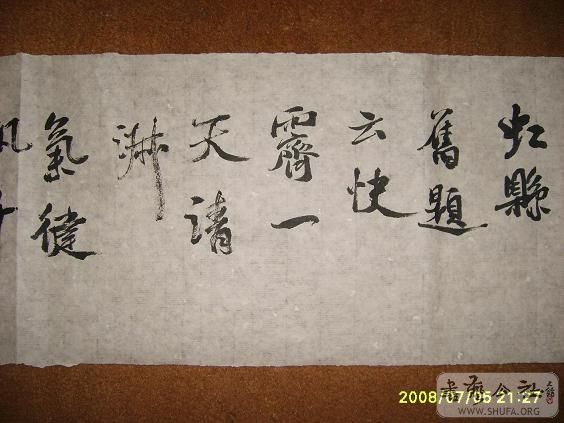 虹縣
舊題
云快
霽一
天清
淑
氣健
2008/07/05 21:27
書法公社
WWW.SHUFA.ORG